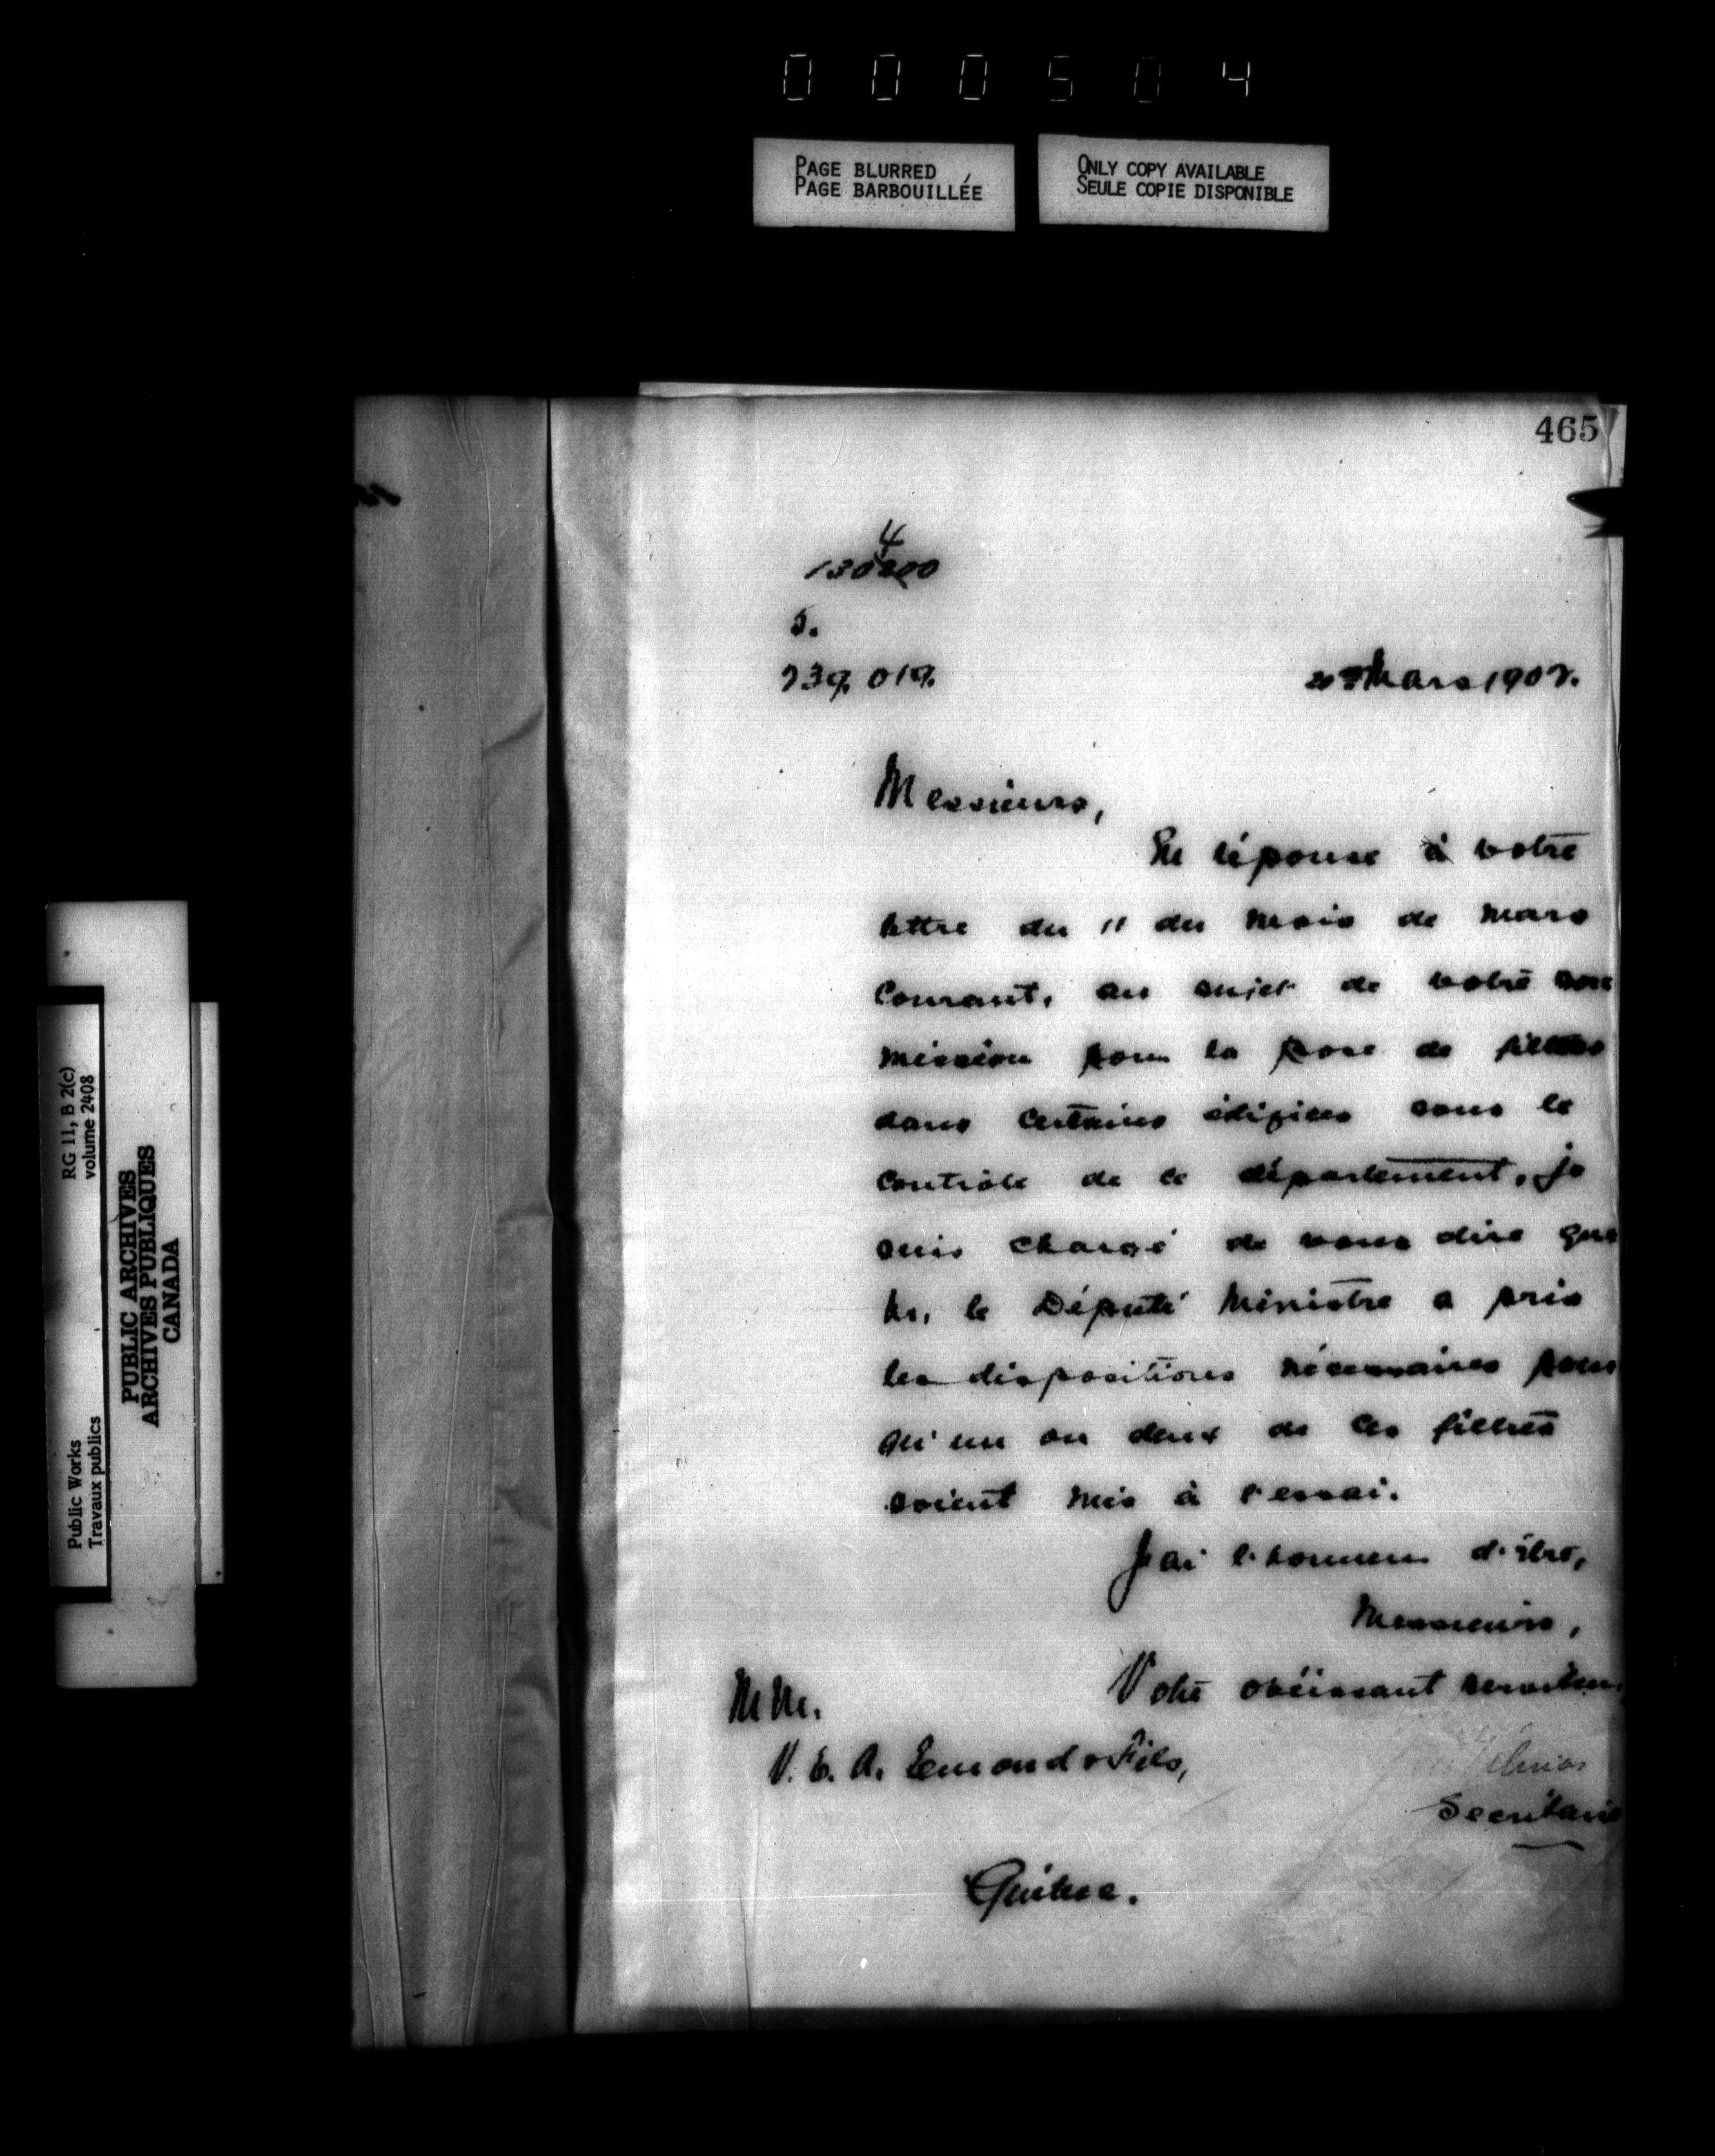 000504
PAGE BLURRED
PAGE BARBOUILLÉE
ONLY COPY AVAILABLE
SEULE COPIE DISPONIBLE
465
4
5.
239,019.
Mars 1902.
Messieurs,
En réponse à votre
lettre du 11 du mois de mars
courant, au sujet de votre sou
mission pour la pose de filtres
dans certains édifices sous le
contrôle de ce département, je
suis chargé de vous dire que
Mr. le Député Ministre a pris
les dispositions nécessaires pour
qu'un ou deux de ces filtres
soient mis à l'essai.
J'ai l'honneur d'être,
Messieurs,
Votre obéissant serviteur
MM.
V. E. A. Emond & Fils,
Secrétaire
Québec.
Public Works
Travaux publics
RG 11, B 2(c)
volume 2408
PUBLIC ARCHIVES
ARCHIVES PUBLIQUES
CANADA